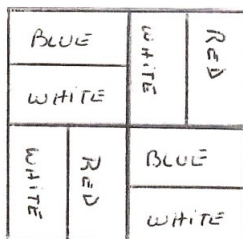 BLUE
WHITE
WHITE
RED
WHITE
RED
BLUE
WHITE